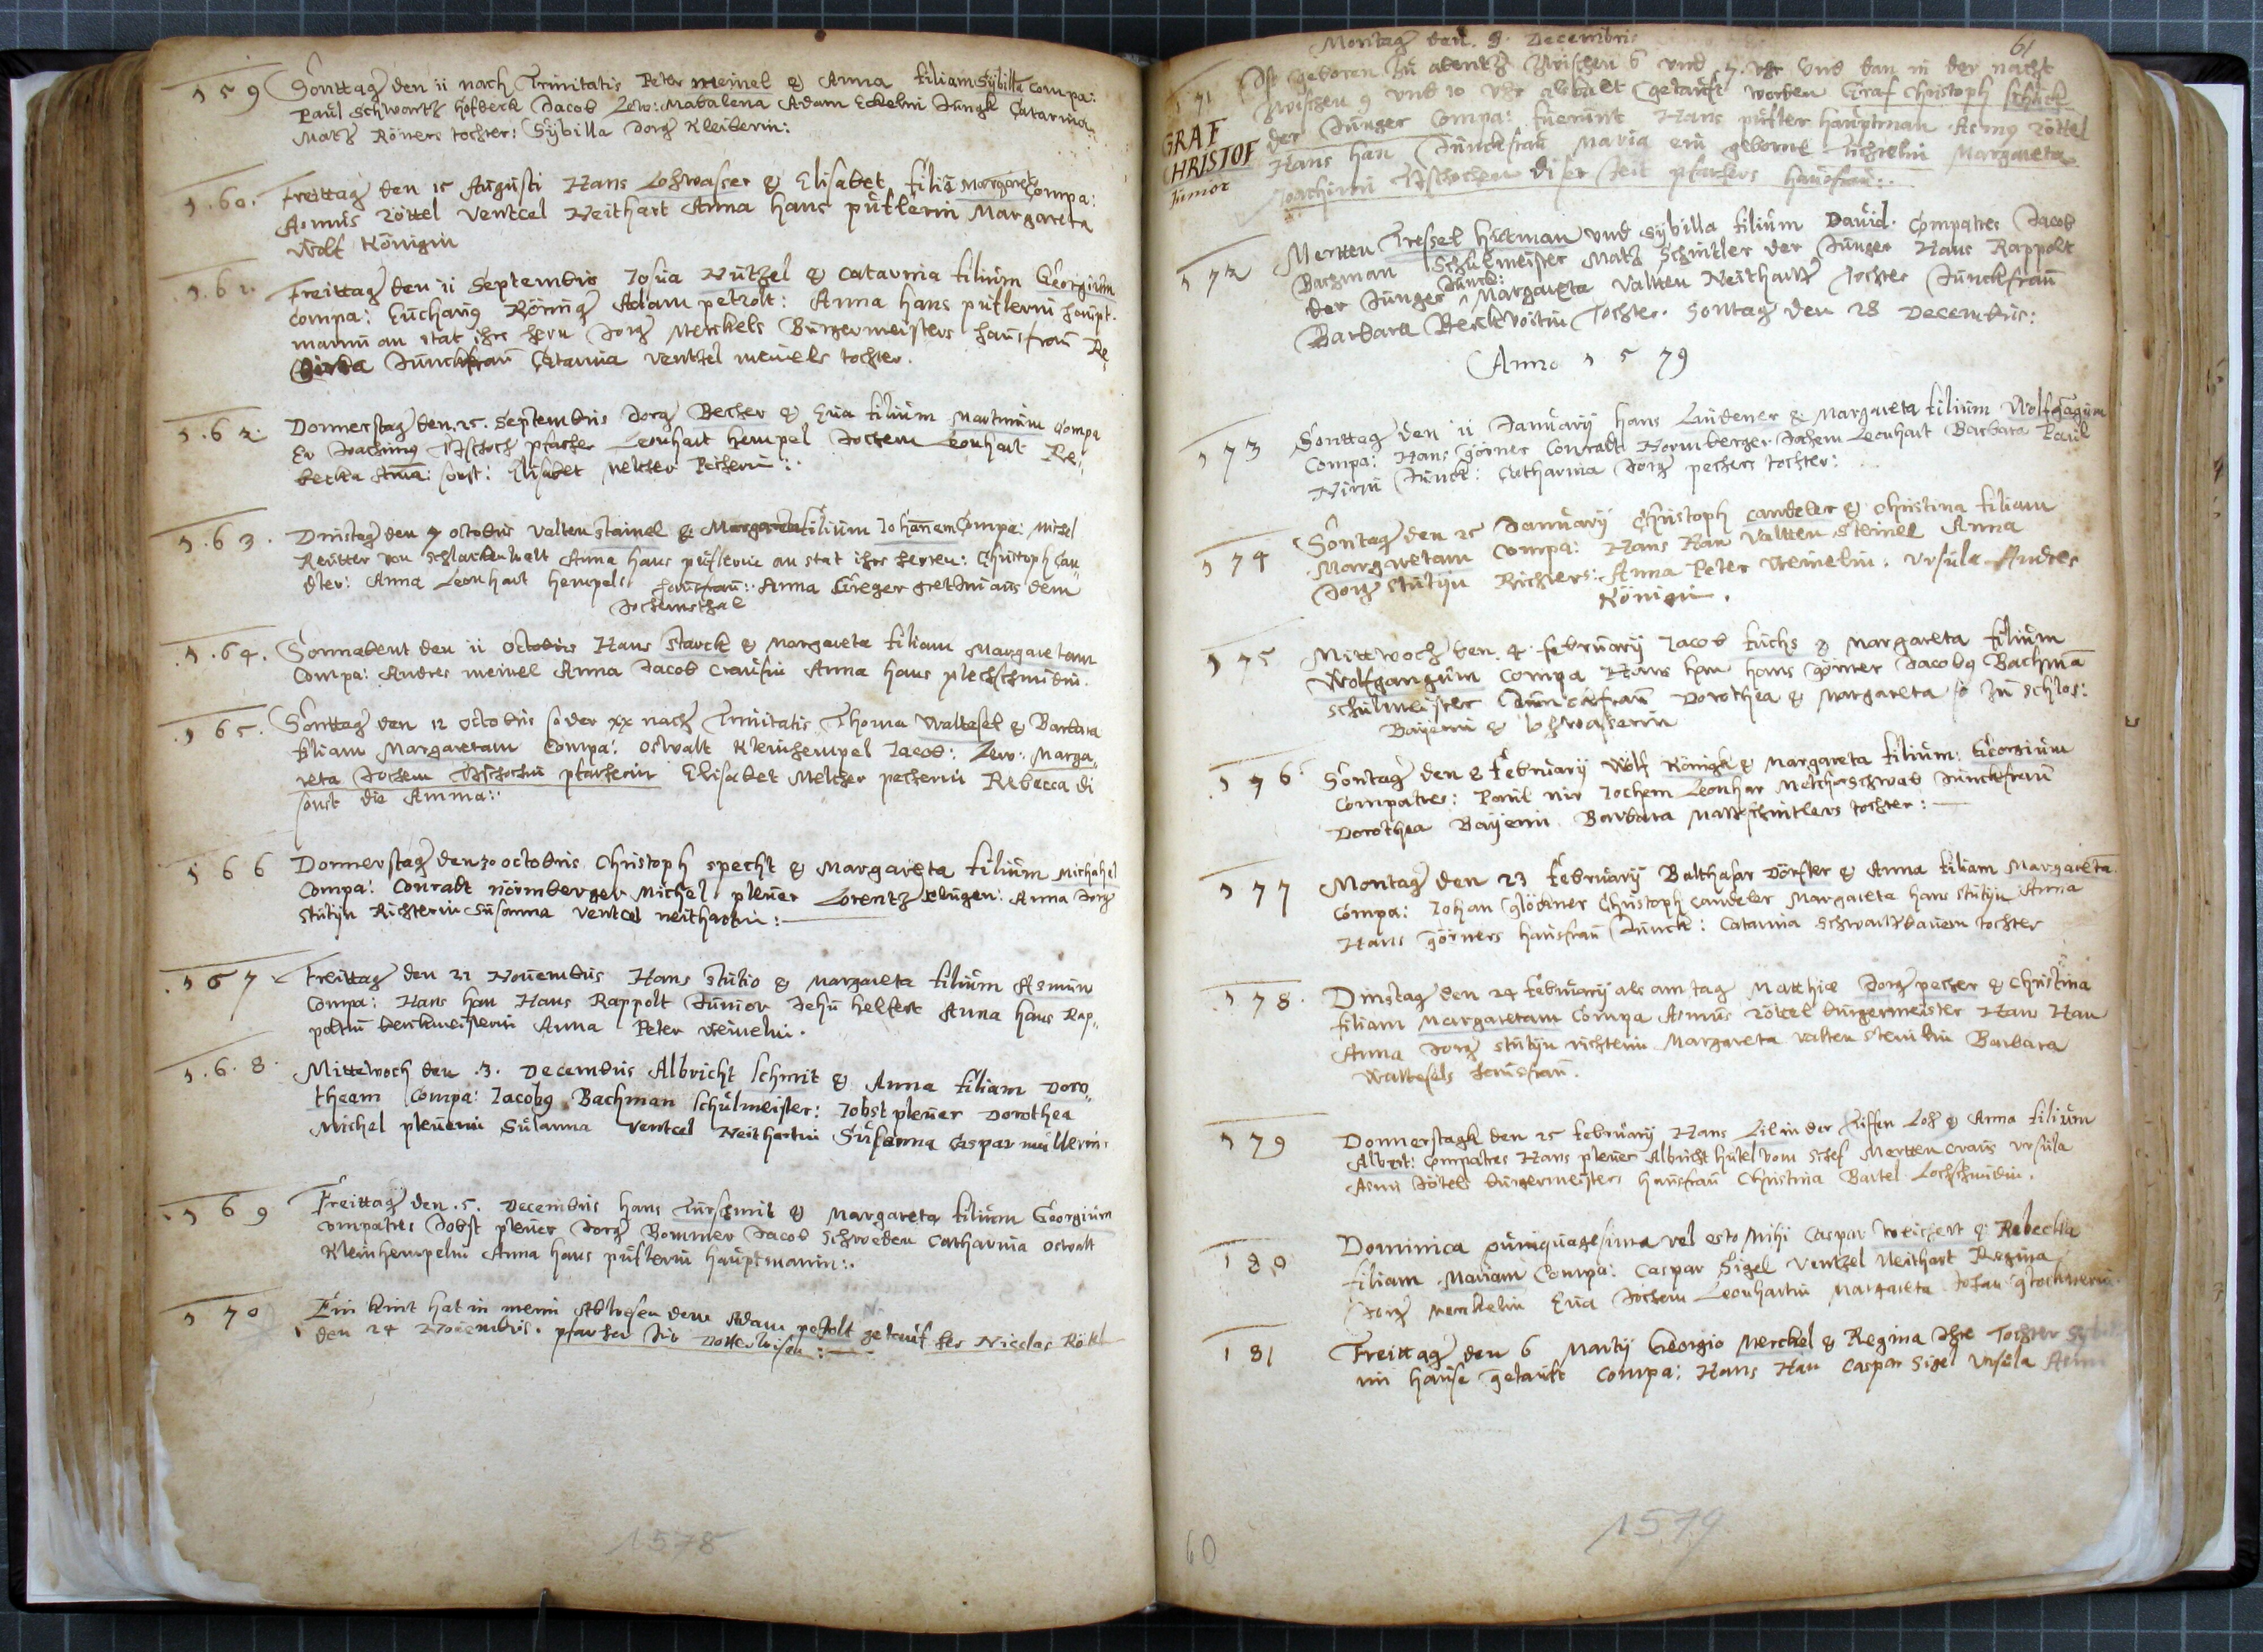 159 Sonttag den 11 nach Trinitatis Peter meinel & Anna filiam Sybilla Compa:
Paul Schwartz hofbeck Jacob Lew: Madalena Adam Eckelni Jungk Catarina
Matz Römers tochter: Sybilla Jorg Kleiberin:
1.60. Freittag den 15 Augusti Hans Lohwasser & Elisabet filia Margaret Compa:
Asmus Röttel Ventcel Neithart Anna hans püflerin Margareta
Wolf Königin
1.61. Freittag den 11 Septembris Josua Nützel & Catarina filium Georgium
Compa: Eucharig Röring Adam petzolt: Anna hans püflerin haupt.
mannin an stat ihrs hern Jorg Merckels Bürgermeisters hausfrau Re
Junckfrau Catarina ventzel meinels tochter.
1.62. Donnerstag den 25. Septembris Jorg Becher & Eua filium Martinum Compa
Er Joachimg Tzschoch pfarher Leonhart hempel Jochem Leonhart Re,,
becka Ama: sonst: Elisabet melcher Becherin:.
1.63. Dinstag den 7 octobris valten stainel & Margareta filium Johanem Compa: Michel
Reutter von Schlackenwalt Anna hans püflerin an stat ihrs herren: Christoph Can,,
dler: Anna Leonhart hempels hausfrau:. Anna Greger gretschni aus dem
Jochemsthal
.1.64. Sonnabent den 11 Octobris Hans starck & Margareta filiam Margaretam
Compa: Andres meinel Anna Jacob Crausin Anna hans plechschmidin.
.165. Sonttag den 12 Octobris so der xx nach Trinitatis Thoma Waltesel & Barbara
filiam Margaretam Compa: Oswalt Kleinhempel Jacob: Lew: Marga,,
reta Jochem Tzschochin pfarherin Elisabet Melcher pecherin Rebecca di
sonst die Amma:.
166 Donnerstag den 30 octobris Christoph specht & Margareta filium Michahel
Compa: Conradt nörmberger Michel pleuer Lorentz Anna Jorg
stutyn Richterin Susanna ventcel neithartin:
.167 Freittag den 21 Nouembris Hans stutio & Margareta filium Asmun
Compa: Hans han Hans Rappolt Junior Jehu helfert Anna hans Rap,,
poltin berckmeisterin Anna Peter meinelin.
1.6.8. Mittwoch den .3. Decembris Albricht schmit & Anna filiam Doro,,
theam Compa: Jacobg Bachman schulmeister: Jobst pleuer Dorothea
Michel pleuerin Susanna Ventcel Neithartin Susanna Caspar müllerin:
.169 Freittag den .5. Decembris hans Türschmit & Margareta filium Georgium
Compatres Jobst pleuer Jorg Bommer Jacob Schweden Catharina Oswalt
Kleinhempelin Anna hans püflerin hauptmanin:.
170 Ein kint hat in meim Abwesen dem Adam petzolt getauf her Nicolas Röttel
den 24 Nouembris. pfarher
1578
Montag den. 9. Decembris 61
171 Ist geboren zu abentz zwischen 6 vnd .7. vhr Vnd dan in der nacht
zwischen 9 vnd 10 vhr alsbalt getauft worden Graf Christoph schlick
GRAF CHRISTOF Junior
der Junger Compa: fuerunt Hans püfler hauptman Asmg Röttel
Hans han Junckfrau Maria ein geborne Margareta
Joachimi Tzschochen diser Zeit pfarhers hausfrau:.
172 Mertten Tressel hutman vnd Sybilla filium Dauid. Compatres Jacob
Bachman Schulmeister Matz Schintler der Junger Hans Rappolt
der Junger Junck: Margareta Valtten Neithartz tochter Junckfrau
Barbara Berckvoitin Tochter. Sontag den 28 Decembris:
Anno 1579
173 Sonttag den 11 January hans Lindener & Margareta filium Wolfgagum
Compa: Hans Görner Conradt Normberger Jochem Leonhart Barbara Paul
Nirin Junck: Catharina Jorg pechers tochter:
174 Sontag den 25 January Christoph Candeler & Christina filiam
Margaretam Compa: Hans Han Valtten Steinel Anna
Jorg Stutyn Richters: Anna Peter Meinelin: Vrsula Andres
Königin.
175 Mittwoch den. 4. february Jacob fuchs & Margareta filium
Wolfgangum Compa Hans han hans Görner Jacobg Bachma
schulmeister Junckfrau Dorothea & Margareta so zu schlos:
Bayerin & Lohwasserin
.176. Sontag den 8 february Wolf Königk & Margareta filium: Georgium
Compatres: Paul nir Jochem Leonhar Melcher Schwab Junckfrau
Dorothea Bayerin. Barbara Matz schintlers tochter:
177 Montag den 23 february Balthasar Dörfler & Anna filiam Margareta
Compa: Johan Glöckner Christoph Candeler Margareta hans stutyn Anna
Hans Görners hausfrau Junck: Catarina Schwartzbauern tochter
.178. Dinstag den 24 february als am tag Matthiæ Jorg pecher & Christina
filiam Margaretam Compa Asmus Röttel bürgermeister Hans Han
Anna Jorg stutyn richterin Margareta valten steinlin Barbara
Waltesels hausfrau.
179 Donnerstagk den 25 february Hans Lil in der Tiffen Loh & Anna filium
Albert: Compatres Hans pleuer Albricht hütel vom Schef Mertten Craus vrsula
Asmi Rötels bürgermeisters hausfrau Christina Bartel Lochschmidin.
180 Dominica quinquagesima vel esto Mihi Caspar Weichert & Rebecka
filiam Mariam Compa: Caspar Sigel Ventzel Neithart Regina
Jorg merckelin Eua Jochem Leonhartin Margareta Johan glocknerin.
181 Freittag den 6 Martij Georgio Merckel & Regina Ihre Tochter
im hause getauft Compa: Hans Han Caspar Sigel Vrsula
60
1579